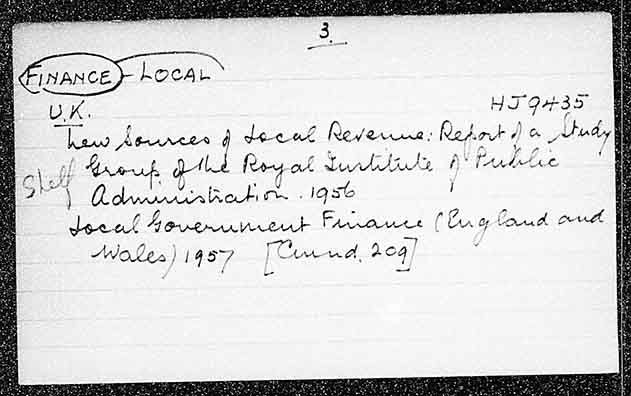 3.
FINANCE - LOCAL
U.K.
HJ9435
New Sources of Local Revenue: Report of a Study
Shelf
Group of the Royal Institute of Public
Administration. 1956
Local Government Finance (England and
Wales) 1957 [Cmnd. 209]